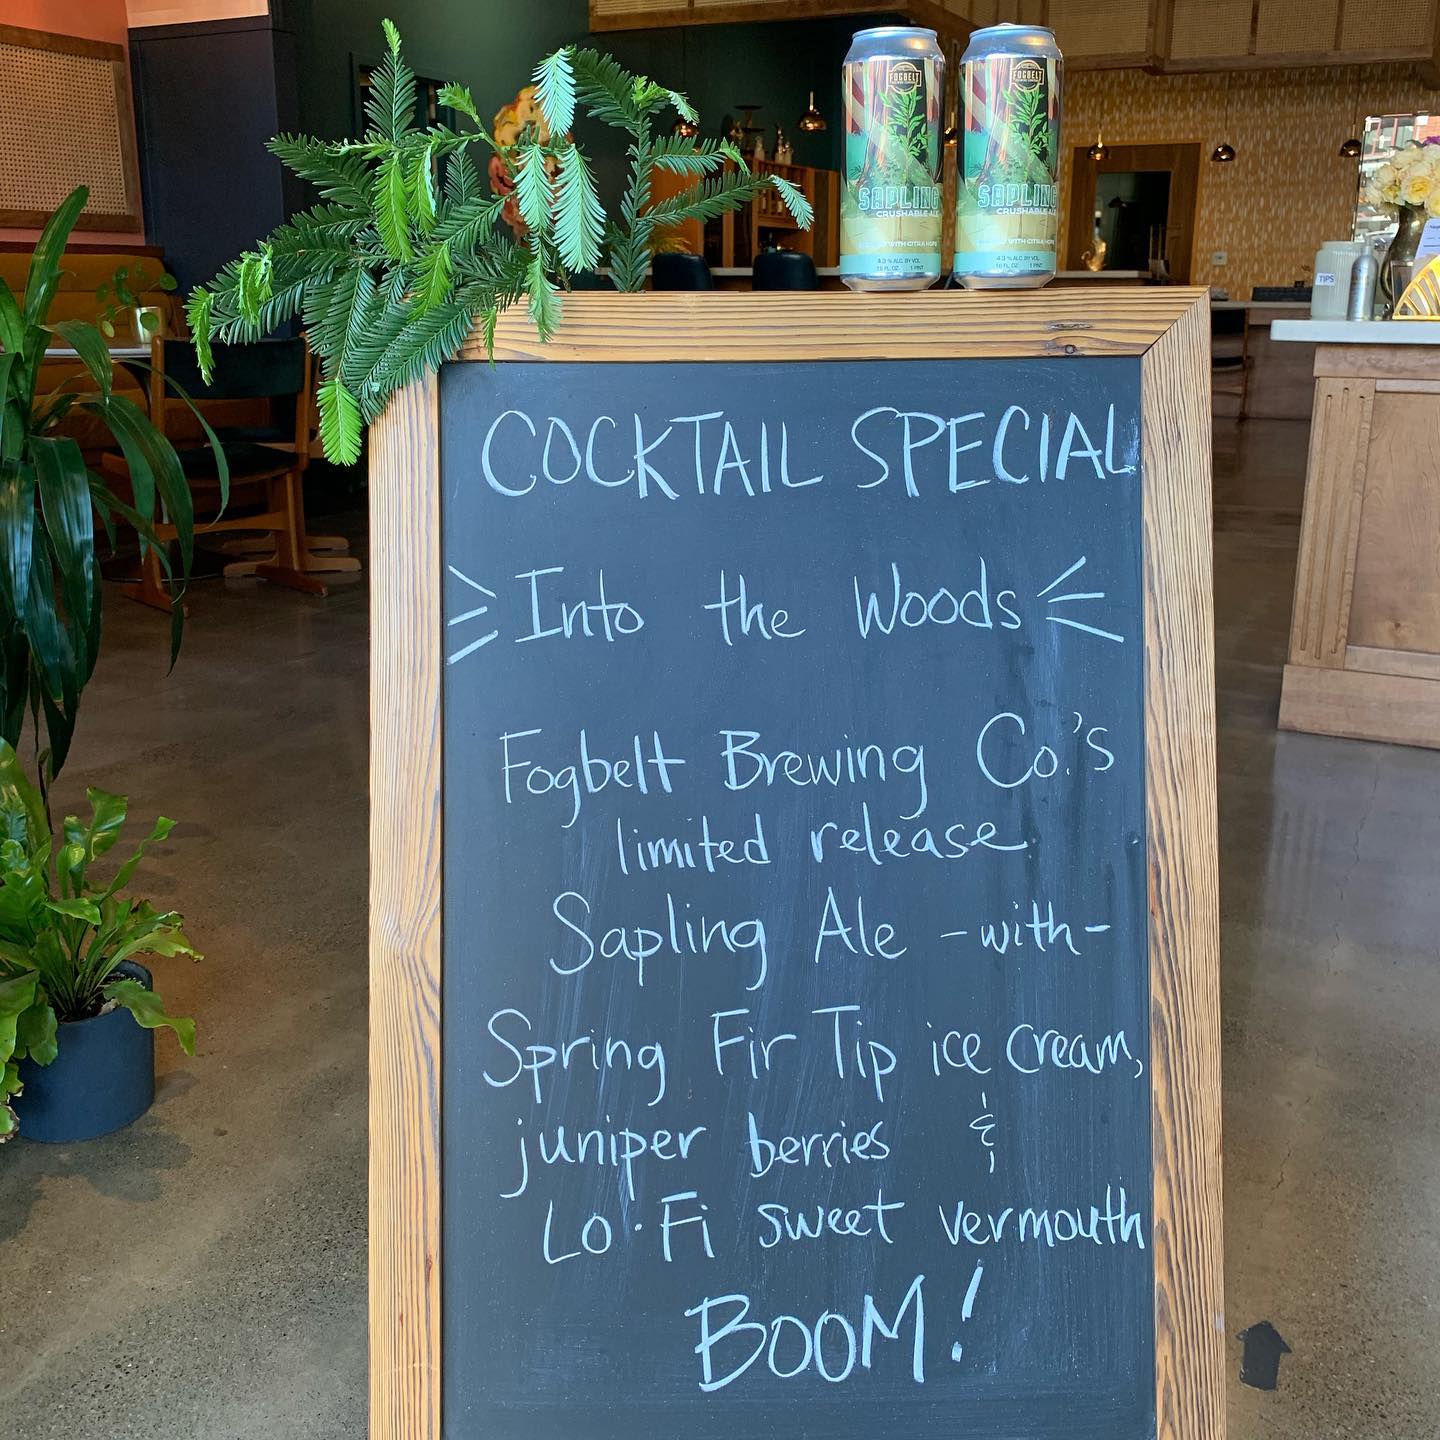 FOGBELT
FOGBELT
SAPLING
SAPLING
CRUSHABLE ALE
CRUSHABLE AL
WITH CITRA HOPS
WITH CITRA HOPS
4.3 % ALC. BY VOL.
4.3 % ALC. BY VOL.
16 FL. OZ. 1 PINT
16 FL. OZ. 1 PINT
TIPS
COCKTAIL SPECIAL
Into the Woods
Fogbelt Brewing Co.'s
limited release
Sapling Ale -with-
Spring Fir Tip ice cream,
juniper berries &
Lo·Fi sweet vermouth
BOOM!